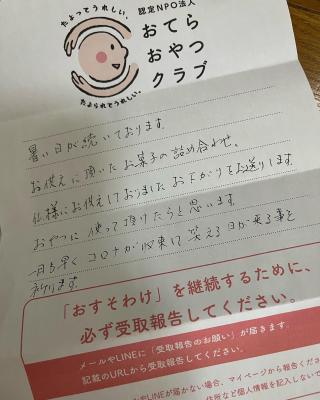 たよってうれしい、
たよられてうれしい。
認定NPO法人
おてら
おやつ
クラブ
暑い日が続いております。
お供えに頂いたお菓子の詰め合わせ、
仏様にお供えしておりました お下がりをお送りします
おやつに 使って頂けたらと思います
一日も早く コロナが収束して 笑える日が来る事を
祈ります。
「おすそわけ」を継続するために、
必ず受取報告してください。
メールやLINEに「受取報告のお願い」が届きます。
記載のURLから受取報告してください。
やLINEが届かない場合、マイページから報告くださ
住所など個人情報を記入しないで